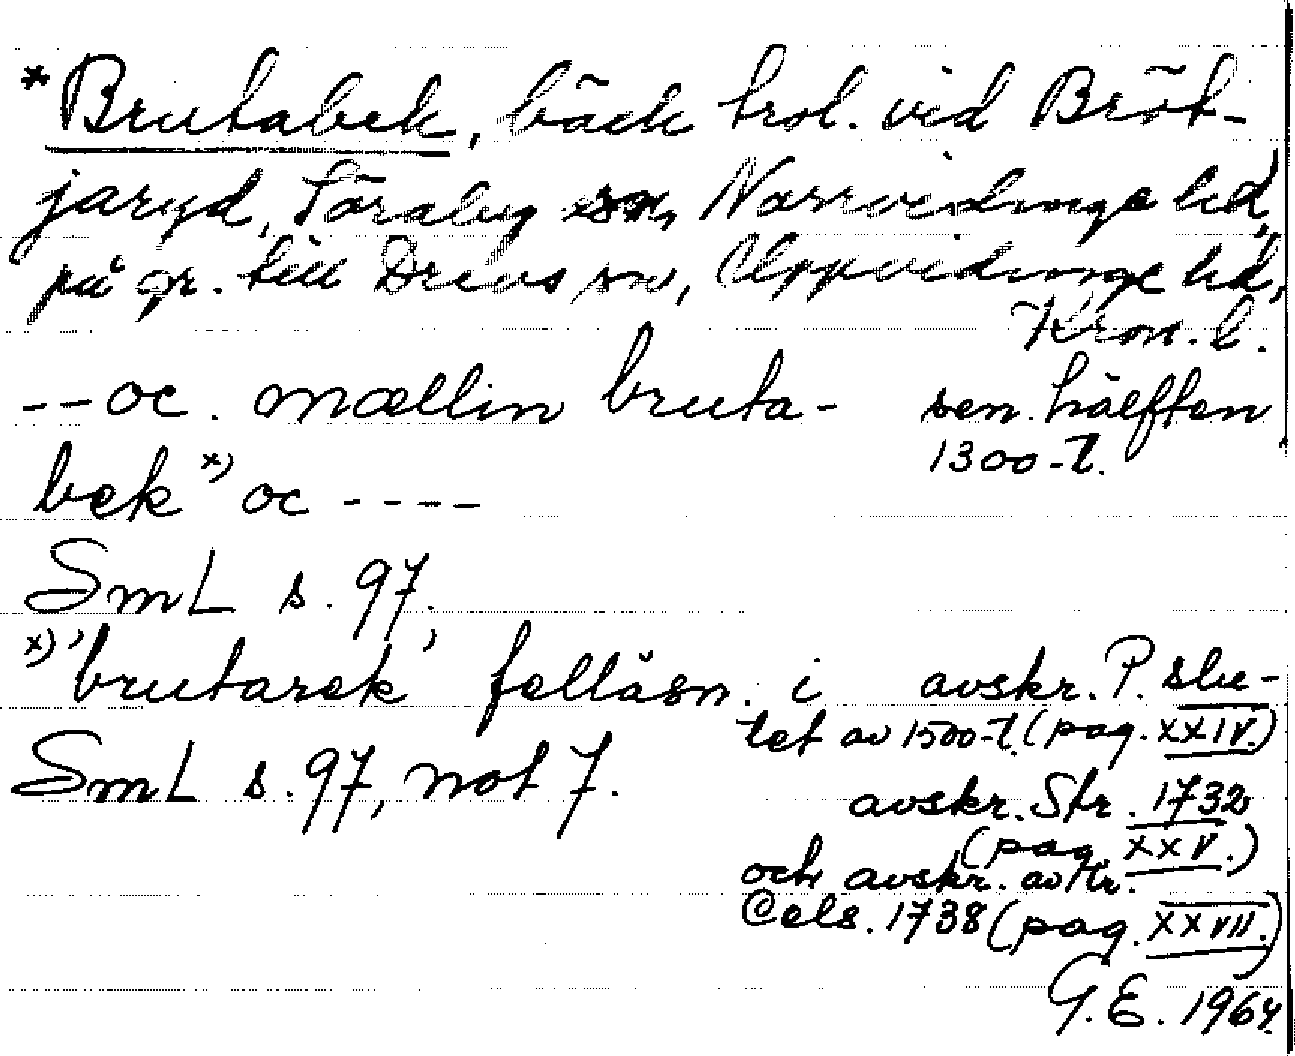 *Brutabek, bäck trol. vid Bröt-
jaryd, Söraby sn, Norrvidinge hd,
på gr. till Drevs sn, Uppvidinge hd,
Kron. l.
--oc. mællin bruta- sen. hälften
1300-t.
bek x) oc ----
SmL s. 97.
x) 'brutarek' felläsn. i avskr. P. slu-
tet av 1500-t. (pag. XXIV.)
SmL s. 97, not 7.
avskr. Str. 1732
(pag. XXV.)
och avskr. av Mr.
Cels. 1738 (pag. XXVII.)
G. E. 1964.